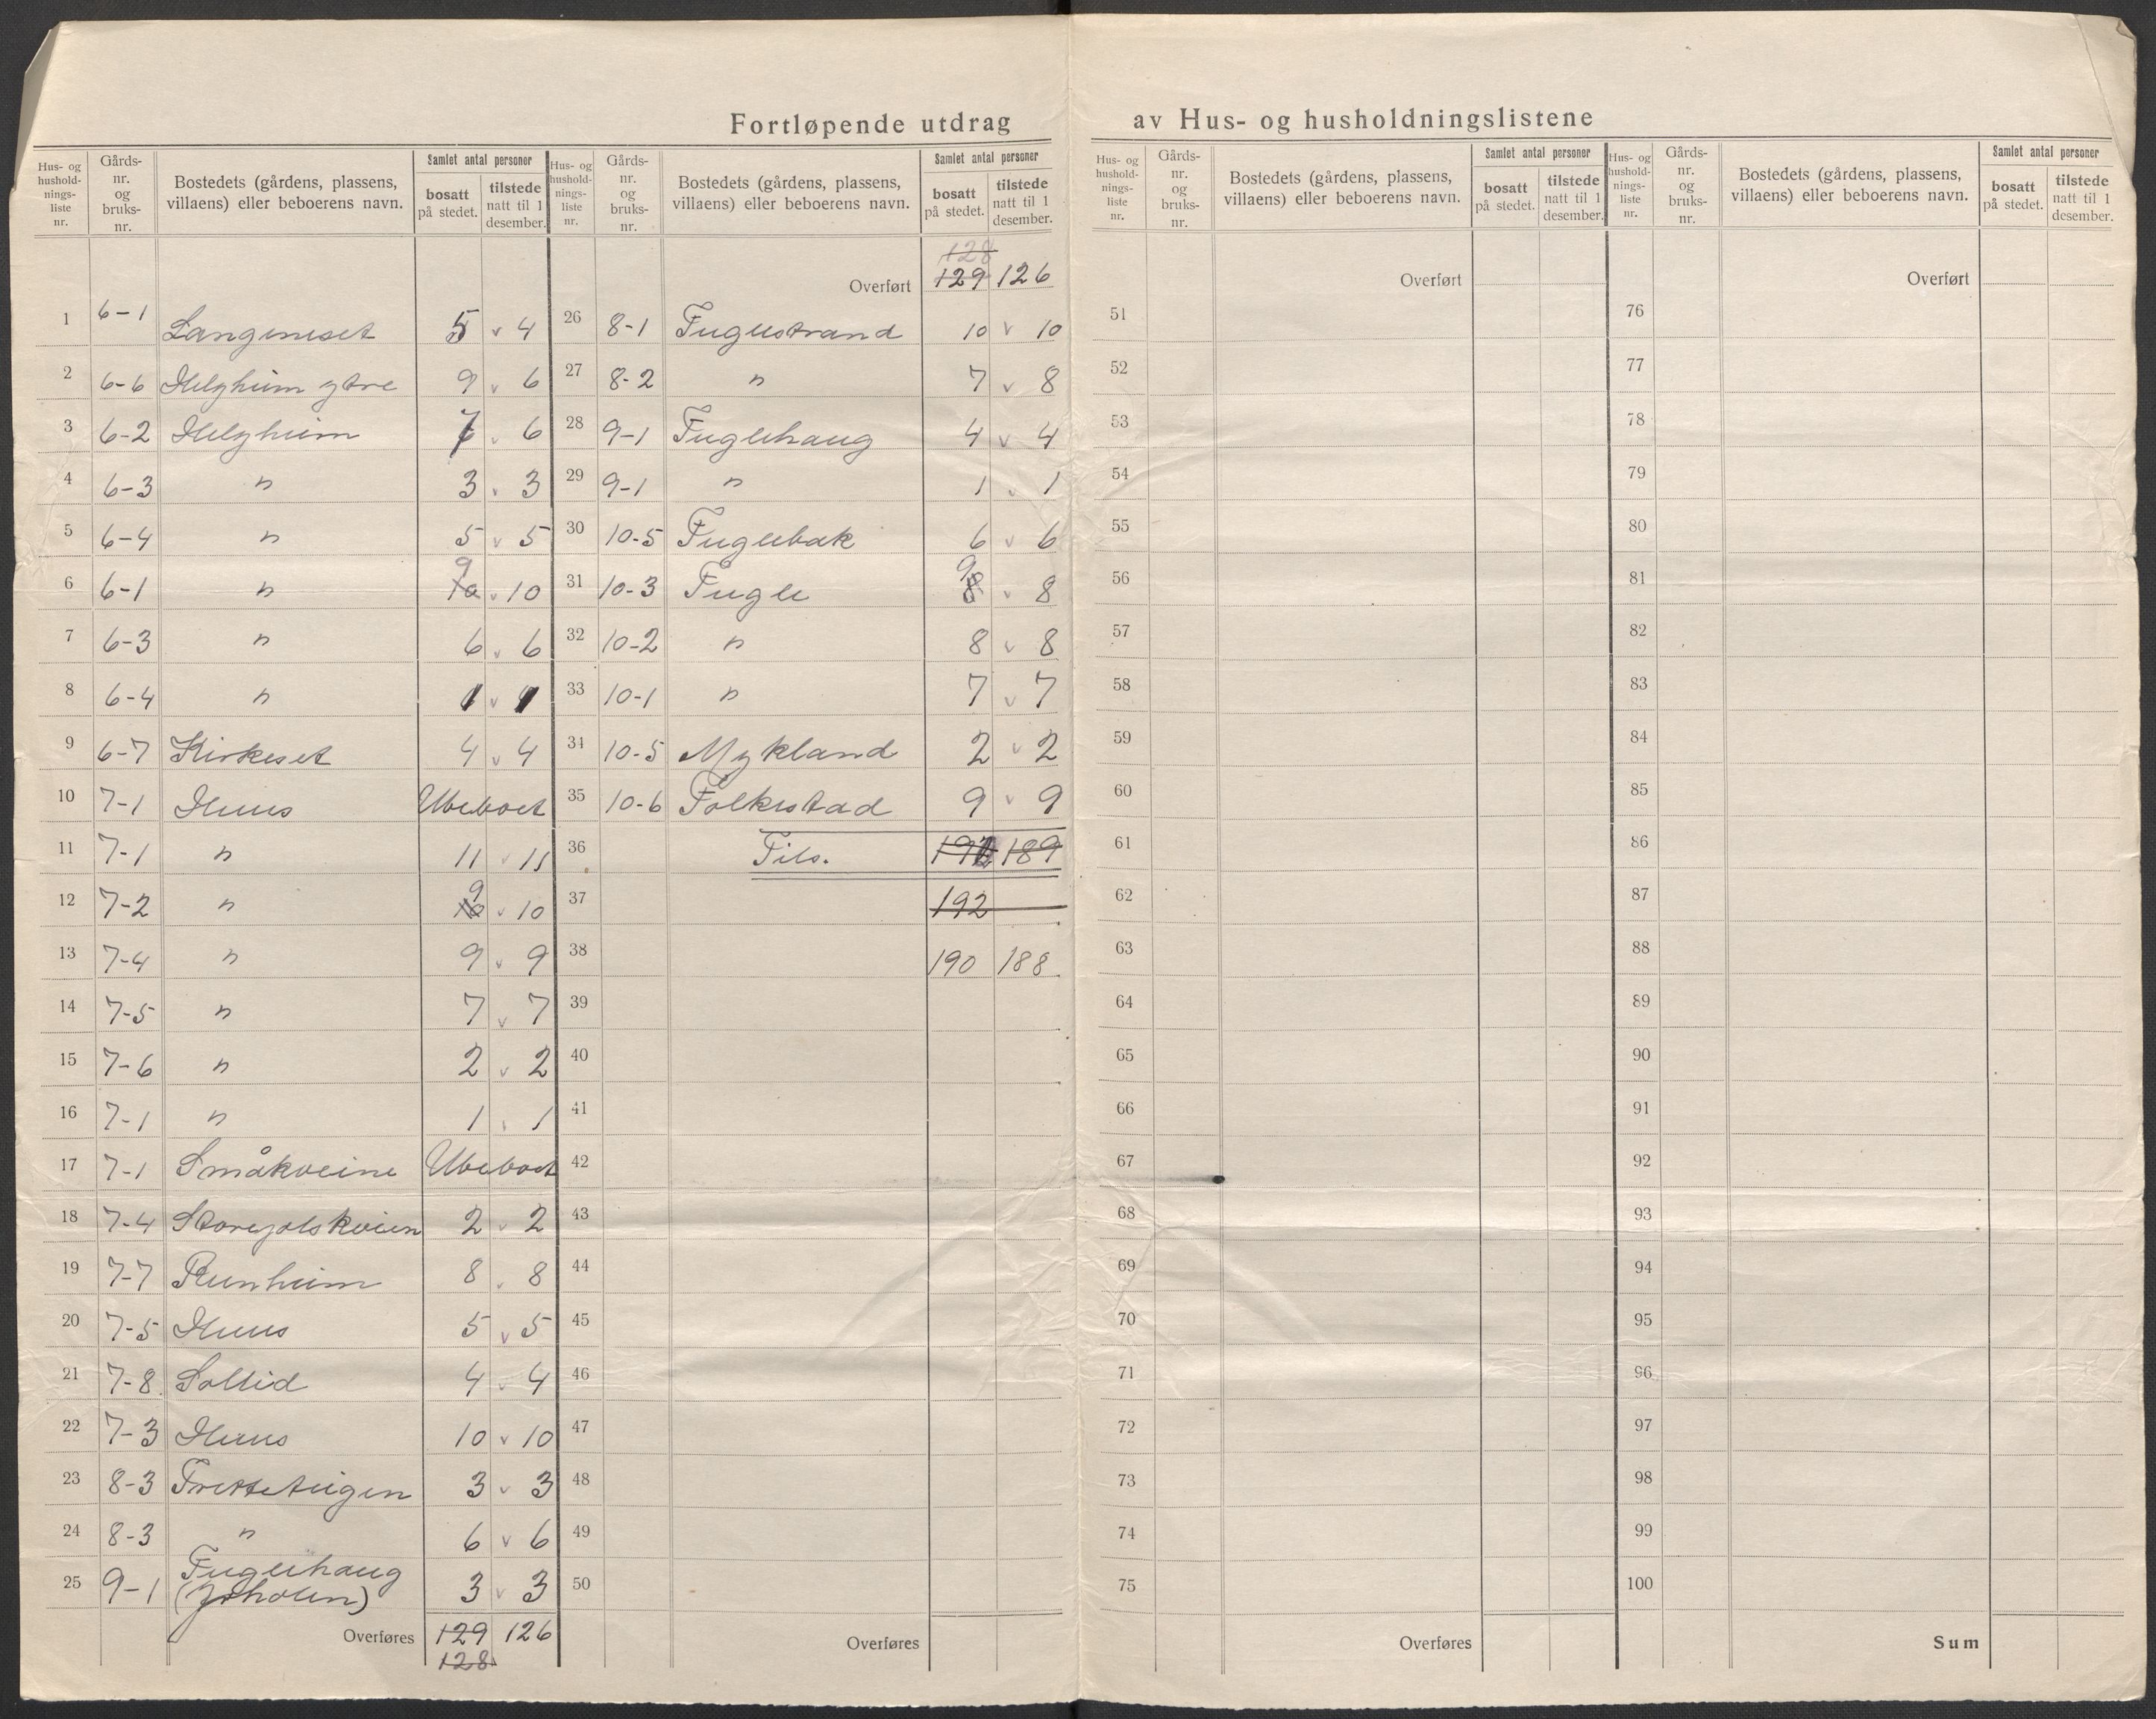 Fortløpende utdrag av Hus- og husholdningslistene
Hus- og hushold-nings-liste nr. Gårds-nr. og bruks-nr. Bostedets (gårdens, plassens, villaens) eller beboerens navn. Samlet antal personer bosatt på stedet. tilstede natt til 1 desember.
1 6-1 Langeneset 5 v 4
2 6-6 Helgheim ytre 9 v 6
3 6-2 Helgheim 7 v 6
4 6-3 " 3 v 3
5 6-4 " 5 v 5
6 6-1 " 10 9 v 10
7 6-3 " 6 v 6
8 6-4 " 1 v 1
9 6-7 Kirkeset 4 v 4
10 7-1 Huus Ubeboet
11 7-1 " 11 v 11
12 7-2 " 10 9 v 10
13 7-4 " 9 v 9
14 7-5 " 7 v 7
15 7-6 " 2 v 2
16 7-1 " 1 v 1
17 7-1 Småkveine Ubeboet
18 7-4 2 v 2
19 7-7 Runheim 8 v 8
20 7-5 Huus 5 v 5
21 7-8 Sollid 4 v 4
22 7-3 Huus 10 v 10
23 8-3 3 v 3
24 8-3 " 6 v 6
25 9-1 Fuglehaug 3 v 3
Overføres 129 126
128
Hus- og hushold-nings-liste nr. Gårds-nr. og bruks-nr. Bostedets (gårdens, plassens, villaens) eller beboerens navn. Samlet antal personer bosatt på stedet. tilstede natt til 1 desember.
128
Overført 129 126
26 8-1 Fuglestrand 10 v 10
27 8-2 " 7 v 8
28 9-1 Fuglehaug 4 v 4
29 9-1 " 1 v 1
30 10-5 Fuglebak 6 v 6
31 10-3 Fugle 8 9 v 8
32 10-2 " 8 v 8
33 10-1 " 7 v 7
34 10-5 Mykland 2 v 2
35 10-6 Folkestad 9 v 9
36 Tils. 189
37 192
38 190 188
39
40
41
42
43
44
45
46
47
48
49
50
Overføres
Hus- og hushold-nings-liste nr. Gårds-nr. og bruks-nr. Bostedets (gårdens, plassens, villaens) eller beboerens navn. Samlet antal personer bosatt på stedet. tilstede natt til 1 desember.
Overført
51
52
53
54
55
56
57
58
59
60
61
62
63
64
65
66
67
68
69
70
71
72
73
74
75
Overføres
Hus- og hushold-nings-liste nr. Gårds-nr. og bruks-nr. Bostedets (gårdens, plassens, villaens) eller beboerens navn. Samlet antal personer bosatt på stedet. tilstede natt til 1 desember.
Overført
76
77
78
79
80
81
82
83
84
85
86
87
88
89
90
91
92
93
94
95
96
97
98
99
100
Sum